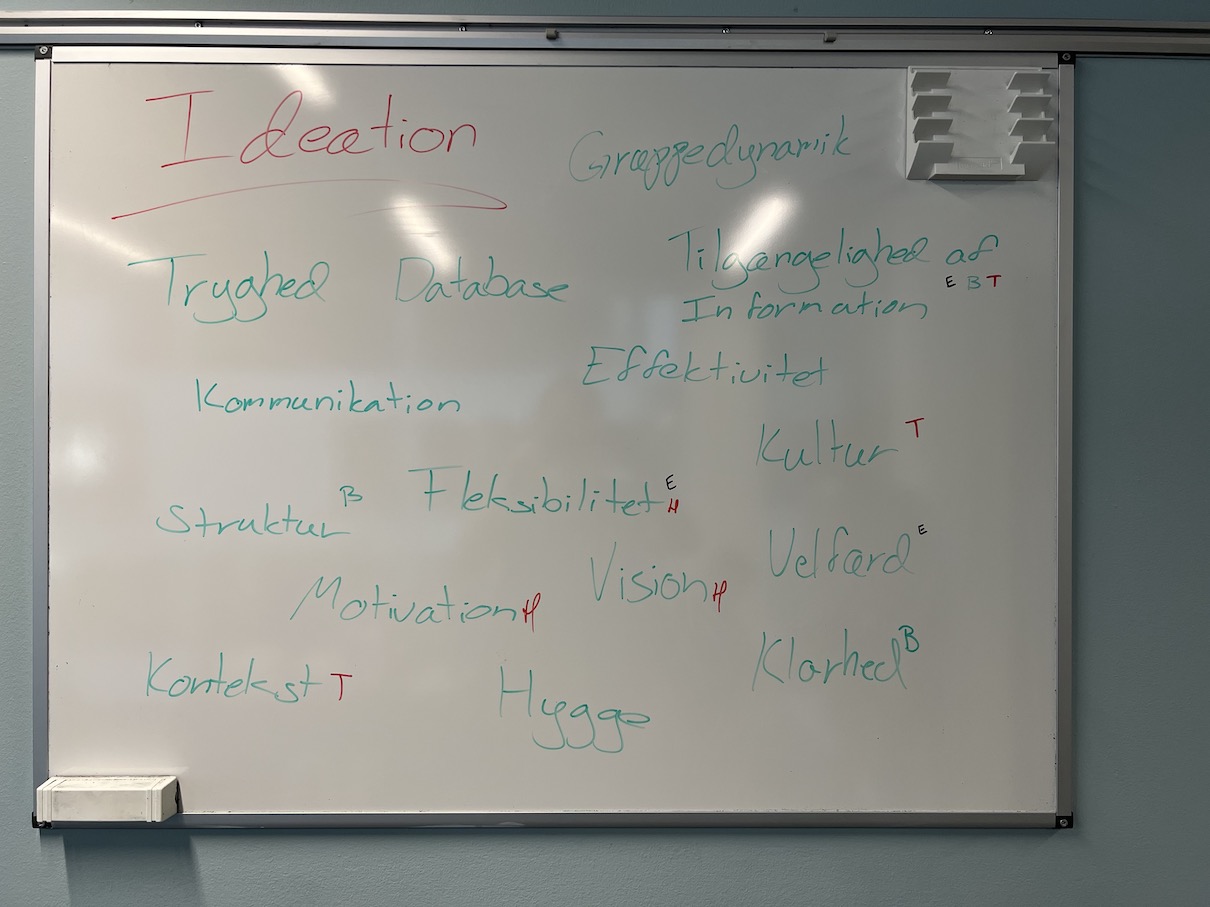 Ideation
Gruppedynamik
Tryghed
Database
Tilgængelighed af
Information
E B T
Effektivitet
Kommunikation
Kultur T
Fleksibilitet E H
Struktur B
Velfærd E
Vision H
Motivation H
Klarhed B
Kontekst T
Hygge